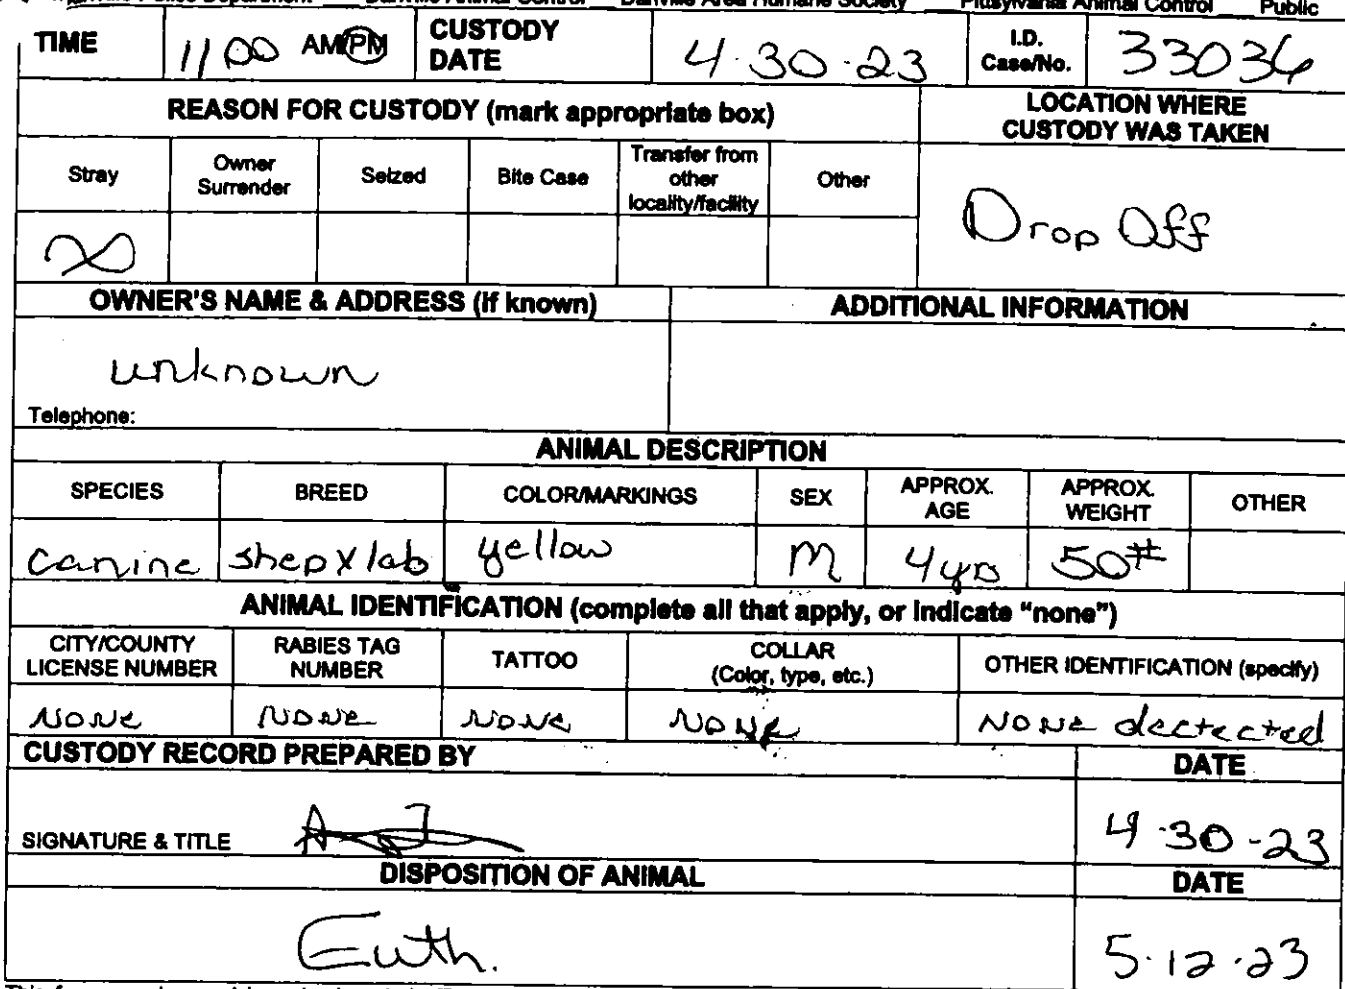 Police Department Danville Animal Control Danville Area Humane Society Pittsylvania Animal Control Public
TIME 11 00 AM/PM CUSTODY DATE 4·30·23 I.D. Case/No. 33036
REASON FOR CUSTODY (mark appropriate box) LOCATION WHERE CUSTODY WAS TAKEN
Stray Owner Surrender Seized Bite Case Transfer from other locality/facility Other
Drop Off
OWNER'S NAME & ADDRESS (if known) ADDITIONAL INFORMATION
unknown
Telephone:
ANIMAL DESCRIPTION
SPECIES BREED COLOR/MARKINGS SEX APPROX. AGE APPROX. WEIGHT OTHER
canine shep X lab yellow M 4yrs 50#
ANIMAL IDENTIFICATION (complete all that apply, or indicate "none")
CITY/COUNTY LICENSE NUMBER RABIES TAG NUMBER TATTOO COLLAR (Color, type, etc.) OTHER IDENTIFICATION (specify)
NONE NONE NONE NONE NONE dectected
CUSTODY RECORD PREPARED BY DATE
SIGNATURE & TITLE 4·30-23
DISPOSITION OF ANIMAL DATE
Euth. 5·12·23